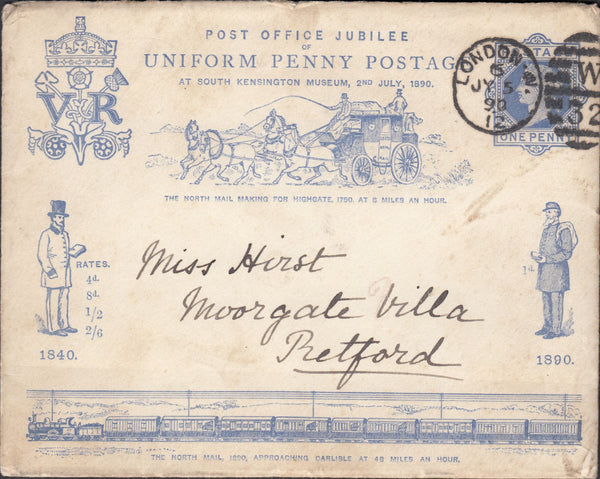 POST OFFICE JUBILEE
OF
UNIFORM PENNY POSTAG
AT SOUTH KENSINGTON MUSEUM, 2ND JULY, 1890.
VR
LONDON·W.
6
JY 5
90
12
W
32
POSTAG
ONE PENN
THE NORTH MAIL MAKING FOR HIGHGATE, 1790. AT 8 MILES AN HOUR.
RATES.
4d.
8d.
1/2
2/6
1840.
Miss Hirst
Moorgate Villa
Retford
1d.
1890.
THE NORTH MAIL, 1890, APPROACHING CARLISLE AT 48 MILES AN HOUR.